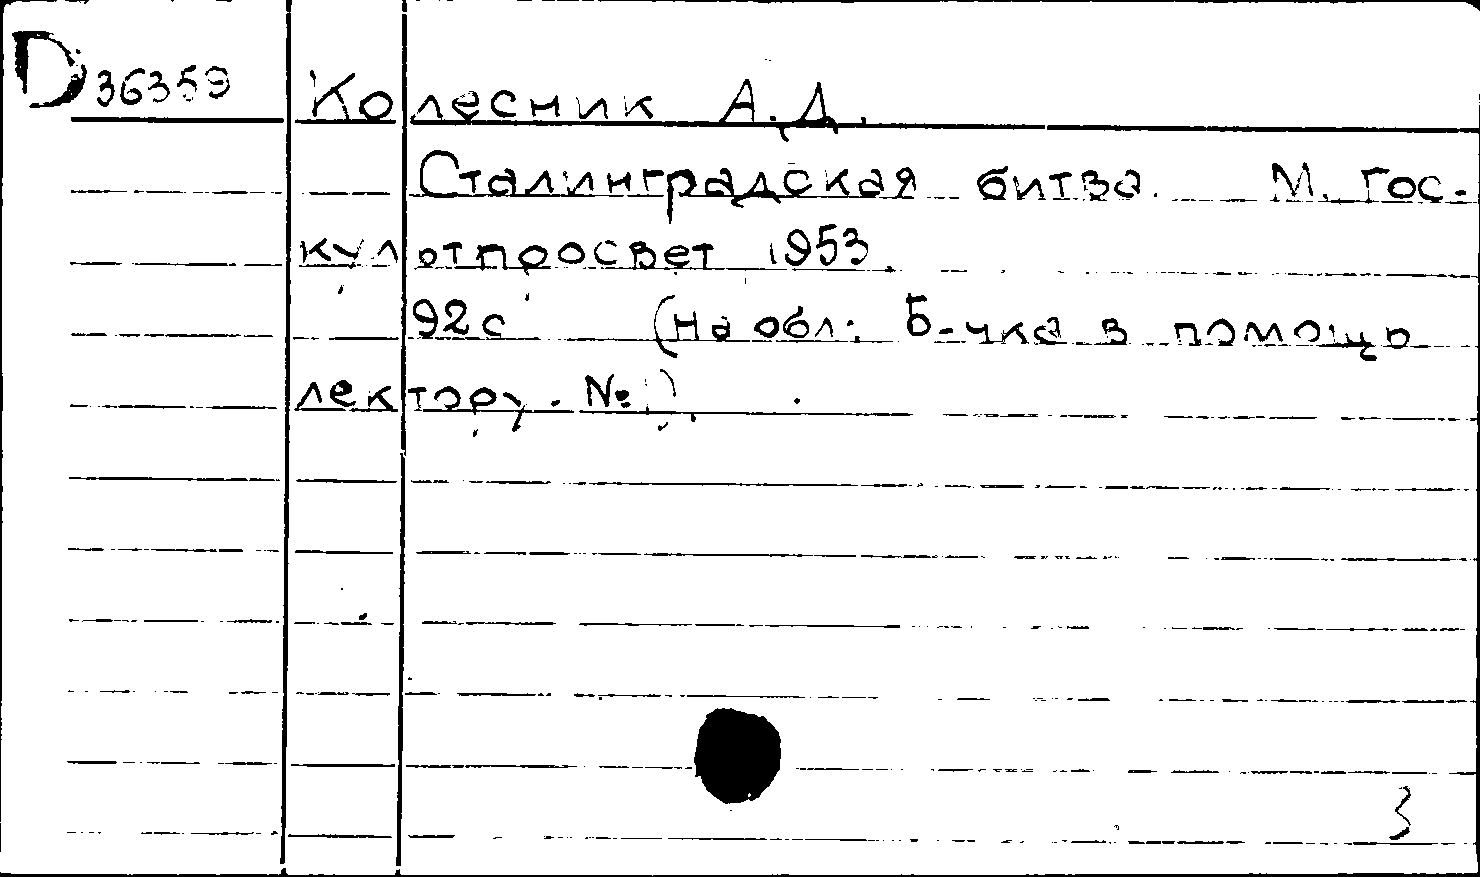 D 36359 Колесник А.Д.
Сталинградская битва. М. Гос-
культпросвет 1953.
92с (На обл: Б-чка в помощь
лектору. № 1).
3